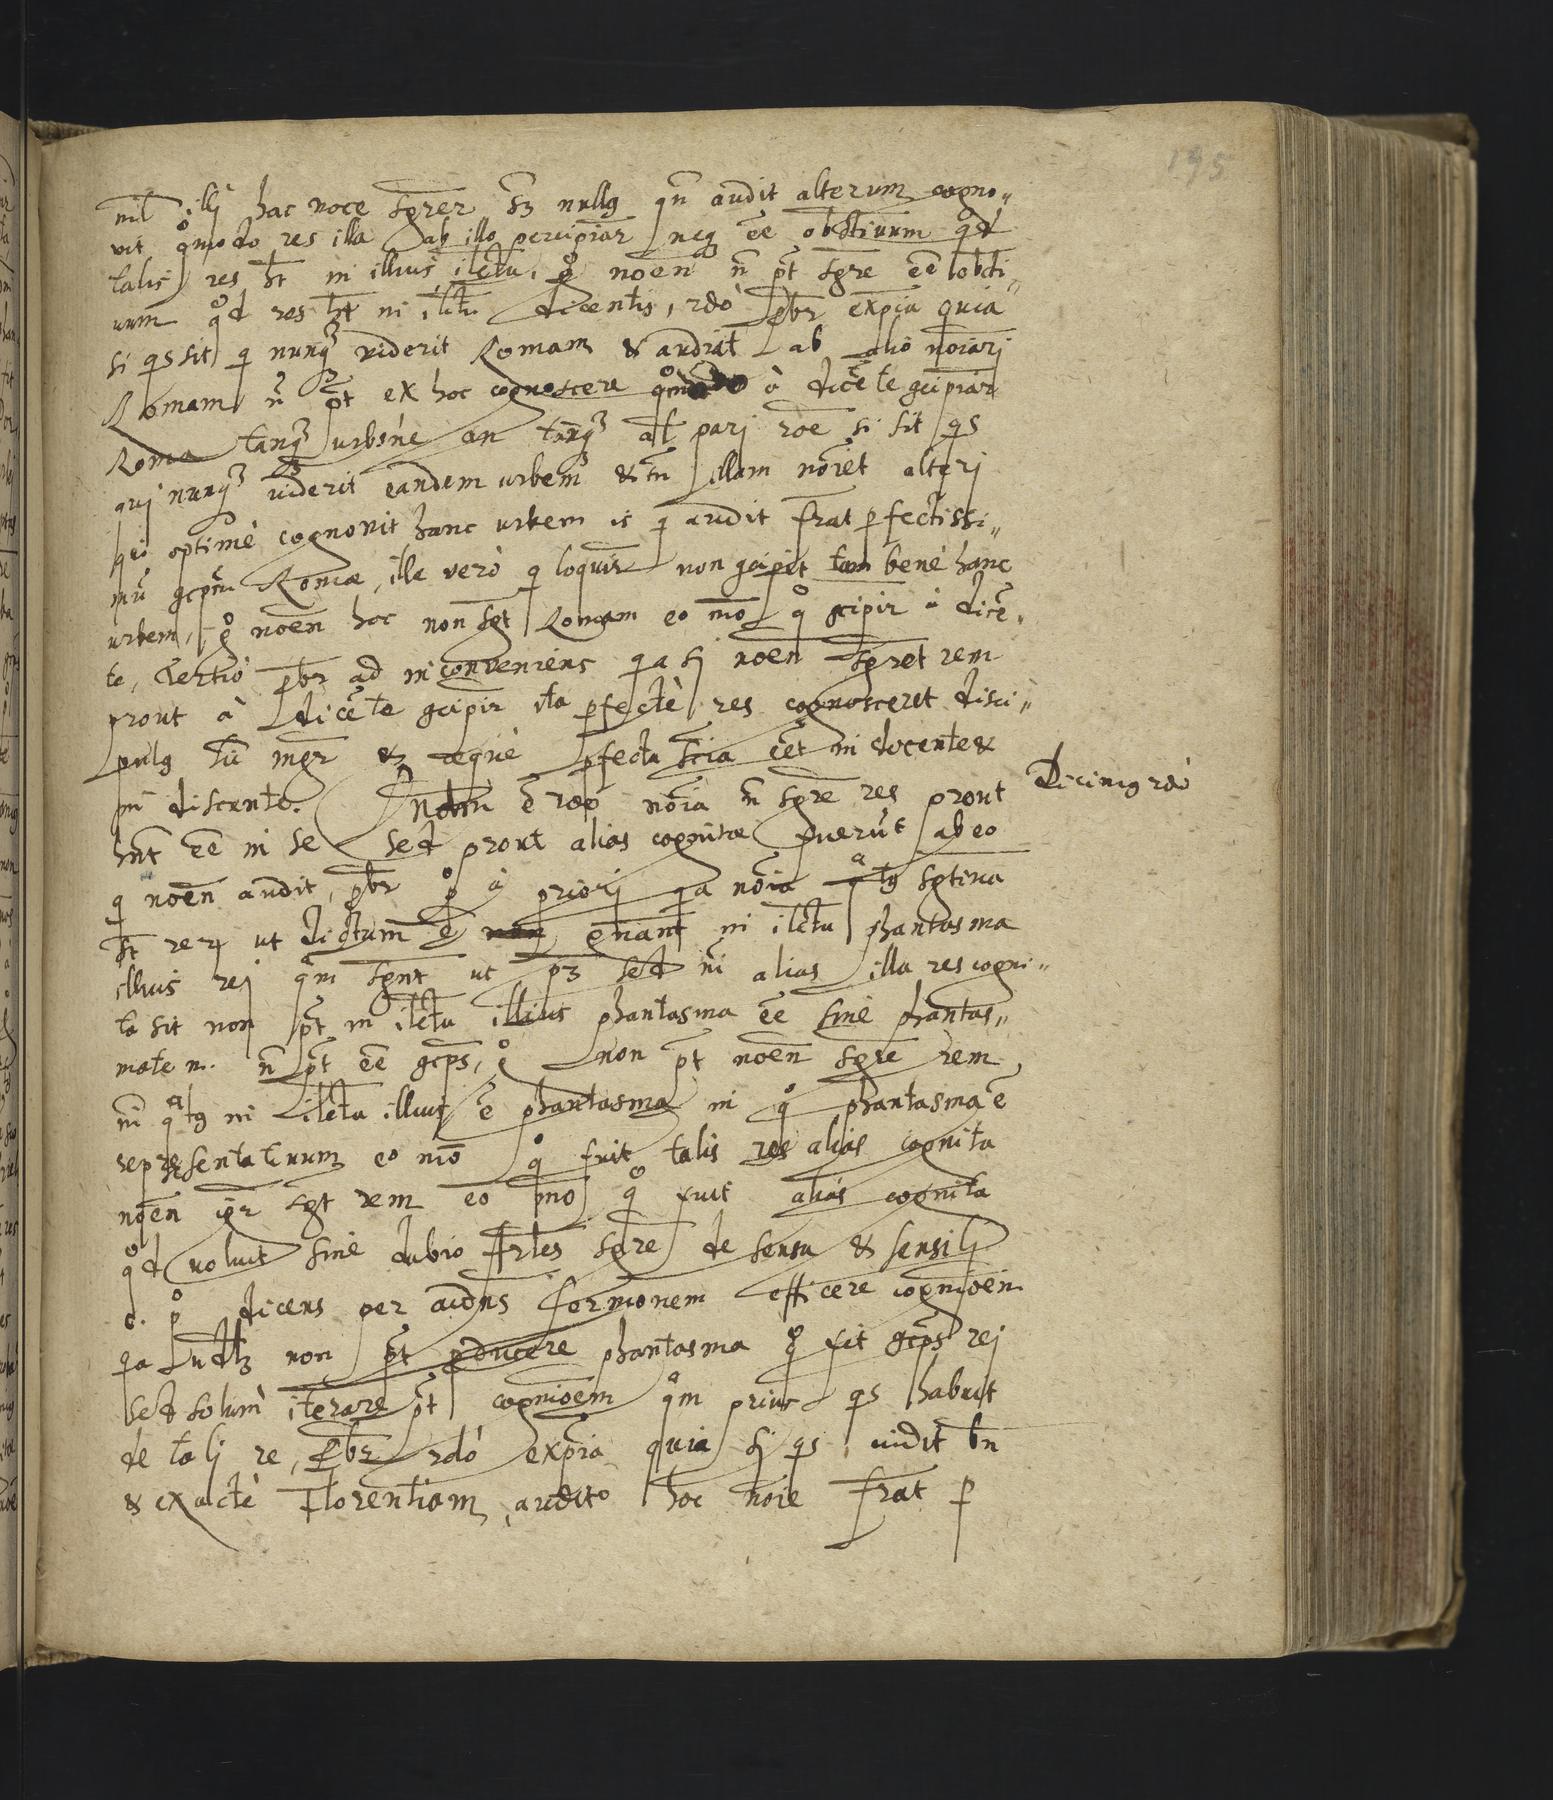 195
illj hac uoce sgrer sz nullq qn audit alterum cogno„
uit qomodo res illa ab illo percipiar neq ēe obctiuum qd
talis res ht in illius ilctu, go noēn n̄ pt sgre ēe obcti„
uum qod res ht in ilctu dicentis, rdò pbr expia quia
si qs sit q nunq̃ uiderit Romam & audiat ab alio noiari
Romam n̄ pt ex hoc cognoscere à dicēte gcipiar
Roma tanq̃ urbs an tanq̃ al pari roē si sit qs
qui nunq̃ uiderit eandem urbem & tn illam noīet alteri
qui optimè cognouit hanc urbem is q audit frat pfectissi„
mū gcptu Romæ, ille verò q loquir non gcipiet tam bene hanc
urbem, go noēn hoc non sgt Romam eo mō qo gcipir à dicē„
te, Tertiò pbr ad inconueniens qa si noēn sgret rem
prout à dicēte gcipir ita pfectè res cognosceret disci„
pulq tū mgr & æquè pfecta scia cēt in docente &
in discente. Notm ē noīa n̄ sgre res prout
hnt ēe in se sed prout alias cognitæ fuerūt ab eo
q noēn audit, pbr po à priorj qa noīa qatq sgtiua
st rerq ut dictum ē gnant in ilctu phantasma
illius rej qm sgnt ut pz sed ni alias illa res cogni„
ta sit non pt in ilctu illius phantasma ēe sine phantas„
mate n. n̄ pt ēe gcps, go non pt noēn sgre rem
ni qatq in ilctu illius ē phantasma in qo phantasma ē
representatiuum eo mō qo fuit talis res alias cognita
noēn igr sgt rem eo mō qo fuit aliàs cognita
qod uoluit sine dubio Arles sgre de sensu & sensilj
c. po dicens per audns sermonem efficere cognioēm
qa non pt pducere phantasma qo fit gcps rej
sed solum iterare pt cognioēm qm prius qs habuit
de talj re, pbr rdò expia quia si qs uidit bn
& exactè Florentiam, audito hoc noīe frat p
Dicimq rdò